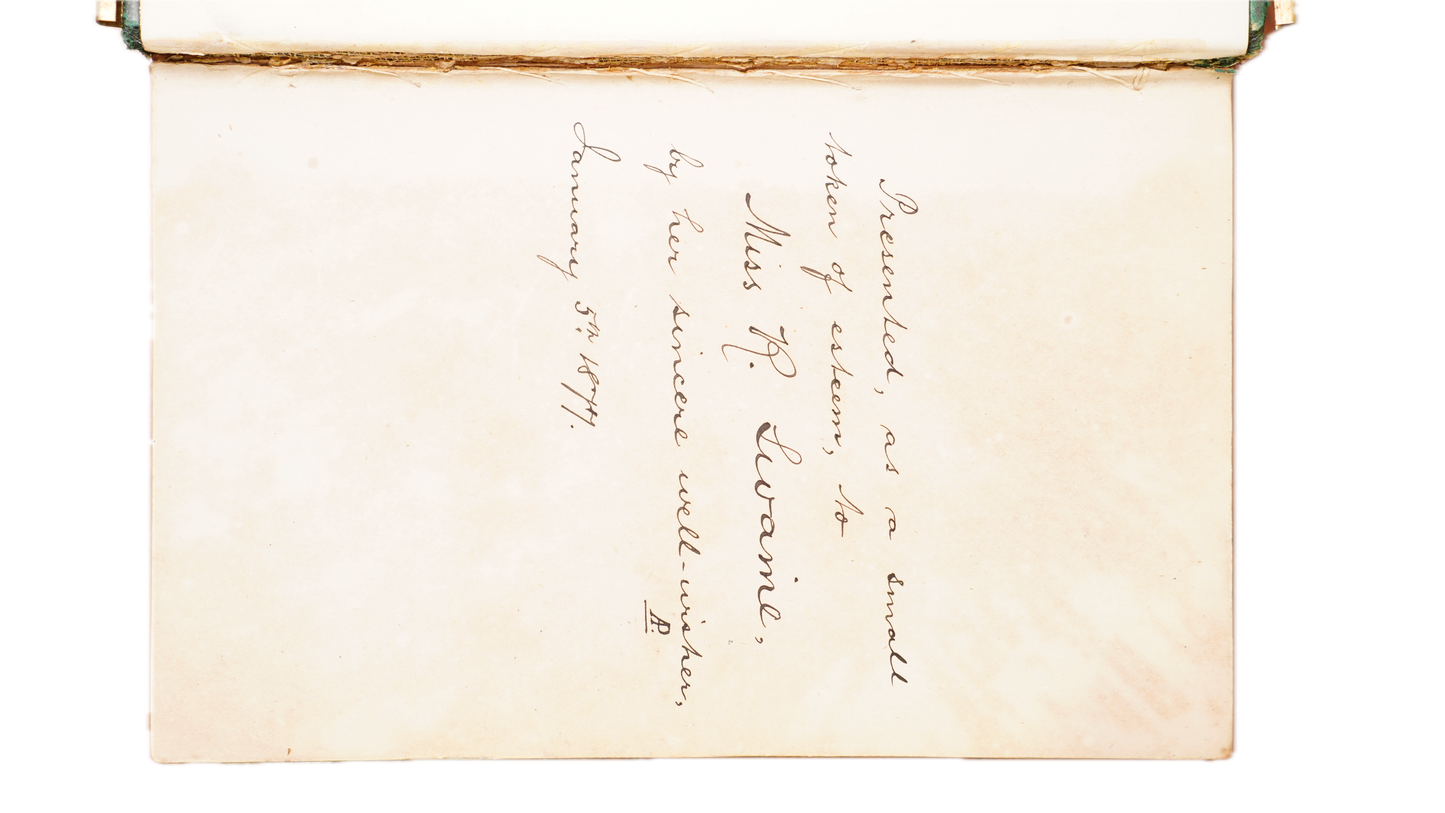 Presented, as a small
token of esteem, to
Miss K. Swaine,
by her sincere well-wisher,
AP.
January 5th 1877.